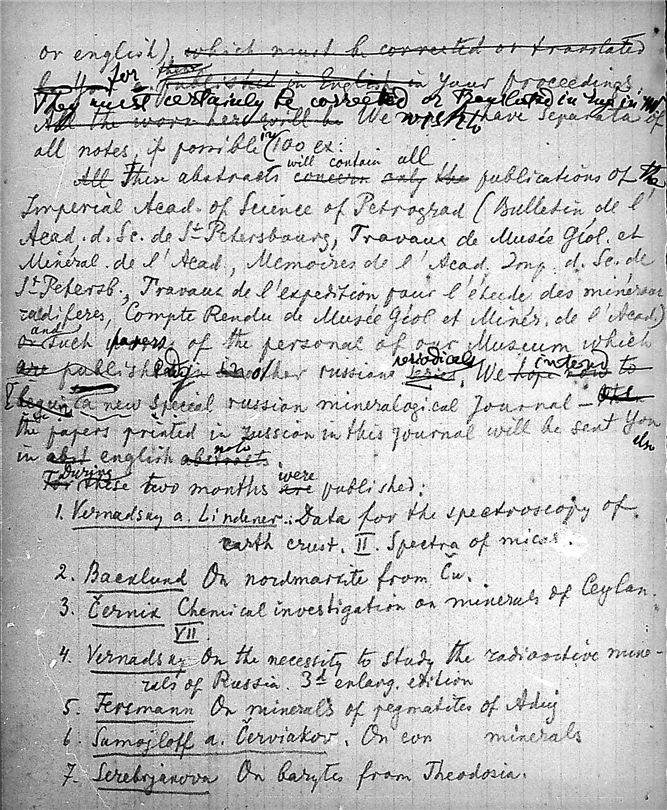 or english) which must be corrected or translated
by You for them published in English in Your Proceedings.
They must certainly be corrected or
All the work here will be We wish to have separata of
all notes, if possible in 100 ex:
All These abstracts will contain all concern only the publications of the
Imperial Acad. of Science of Petrograd (Bulletin de l'
Acad. d. Sc. de St Petersbourg, Travaux de Musée Géol. et
Minéral. de l'Acad., Memoires de l'Acad. Imp. d. Sc. de
St Petersb., Travaux de l'expedition pour l'étude des mineraux
radiferes, Compte Rendu de Musée Géol et Minér. de l'Acad.)
and or such papers of the personal of our Museum which
are published in other russians periodicals series. We hope now to intend
begin a new special russian mineralogical Journal –
& the papers printed in russion in this journal will be sent You
in abst english abstracts note
For During these two months were are published:
1. Vernadsky a. Lindener: Data for the spectroscopy of
earth crust. II. Spectra of micas.
2. Backlund On nordmarkite from Ču.
3. Černik Chemical investigation on minerals of Ceylan.
VII
4. Vernadsky On the necessity to study the radioactive mine-
rals of Russia. 3d enlarg. edition
5. Fersmann On minerals of pegmatites of Aduj
6. Samojloff a. Červiakov. On con minerals
7. Serebrjanova On barytes from Theodosia.